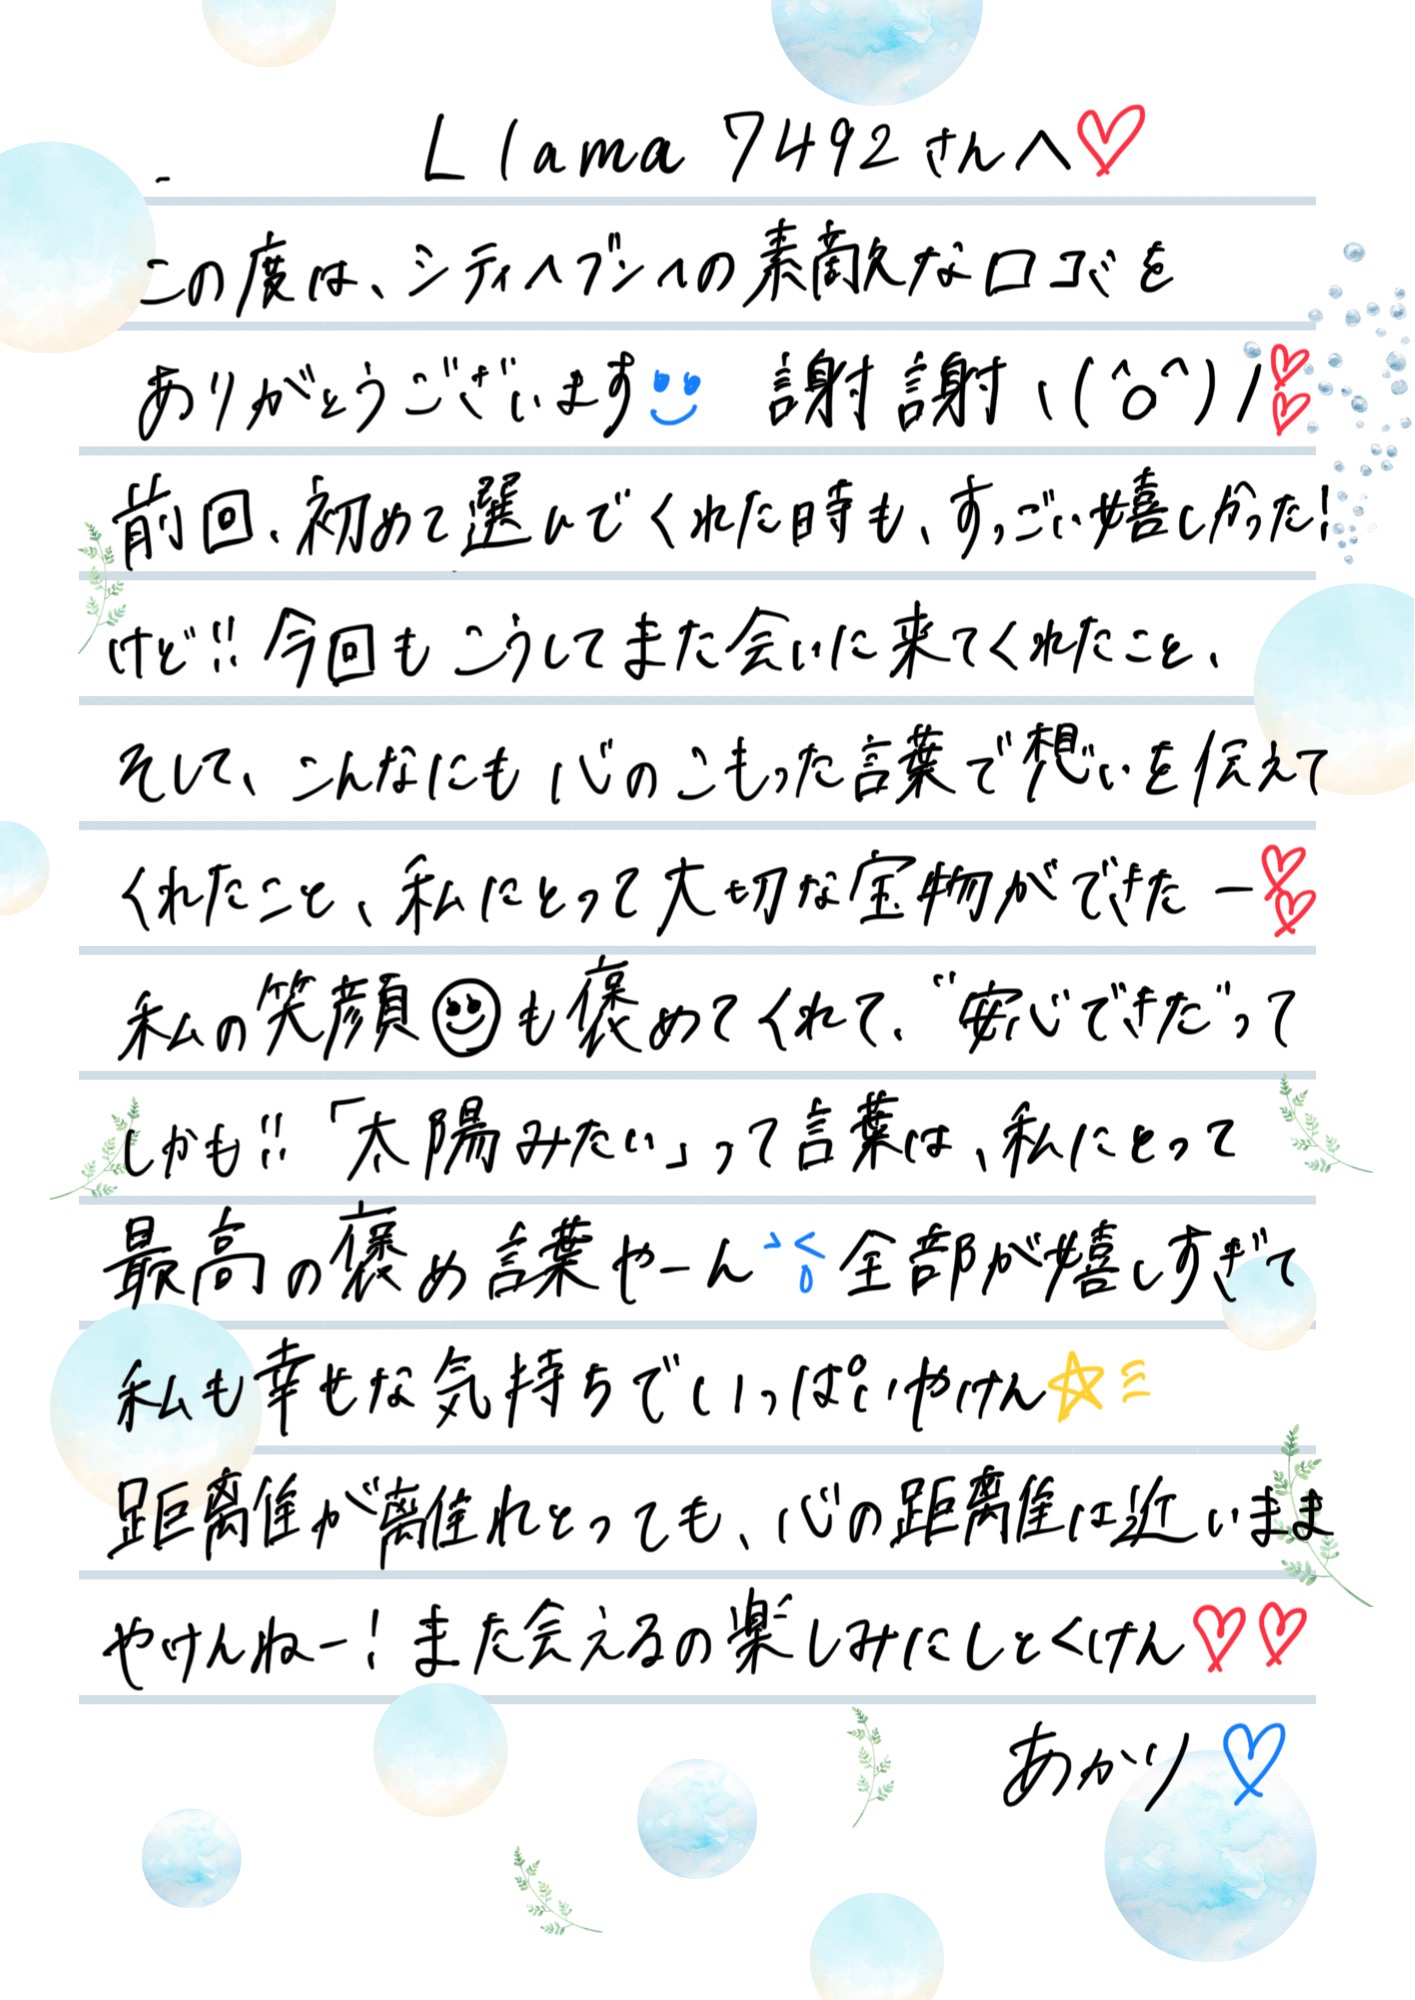 Llama 7492さんへ♡
この度は、シティヘブンへの素敵な口コミを
ありがとうございます 謝謝ヽ(^o^)ノ♡♡
前回、初めて選んでくれた時も、すっごい嬉しかった!
けど!!今回もこうしてまた会いに来てくれたこと、
そして、こんなにも心のこもった言葉で想いを伝えて
くれたこと、私にとって大切な宝物ができたー♡♡
私の笑顔も褒めてくれて、“安心できた”って
しかも!!「太陽みたい」って言葉は、私にとって
最高の褒め言葉やーん 全部が嬉しすぎて
私も幸せな気持ちでいっぱいやけん☆
距離が離れとっても、心の距離は近いまま
やけんねー!また会えるの楽しみにしとくけん♡♡
あかり♡